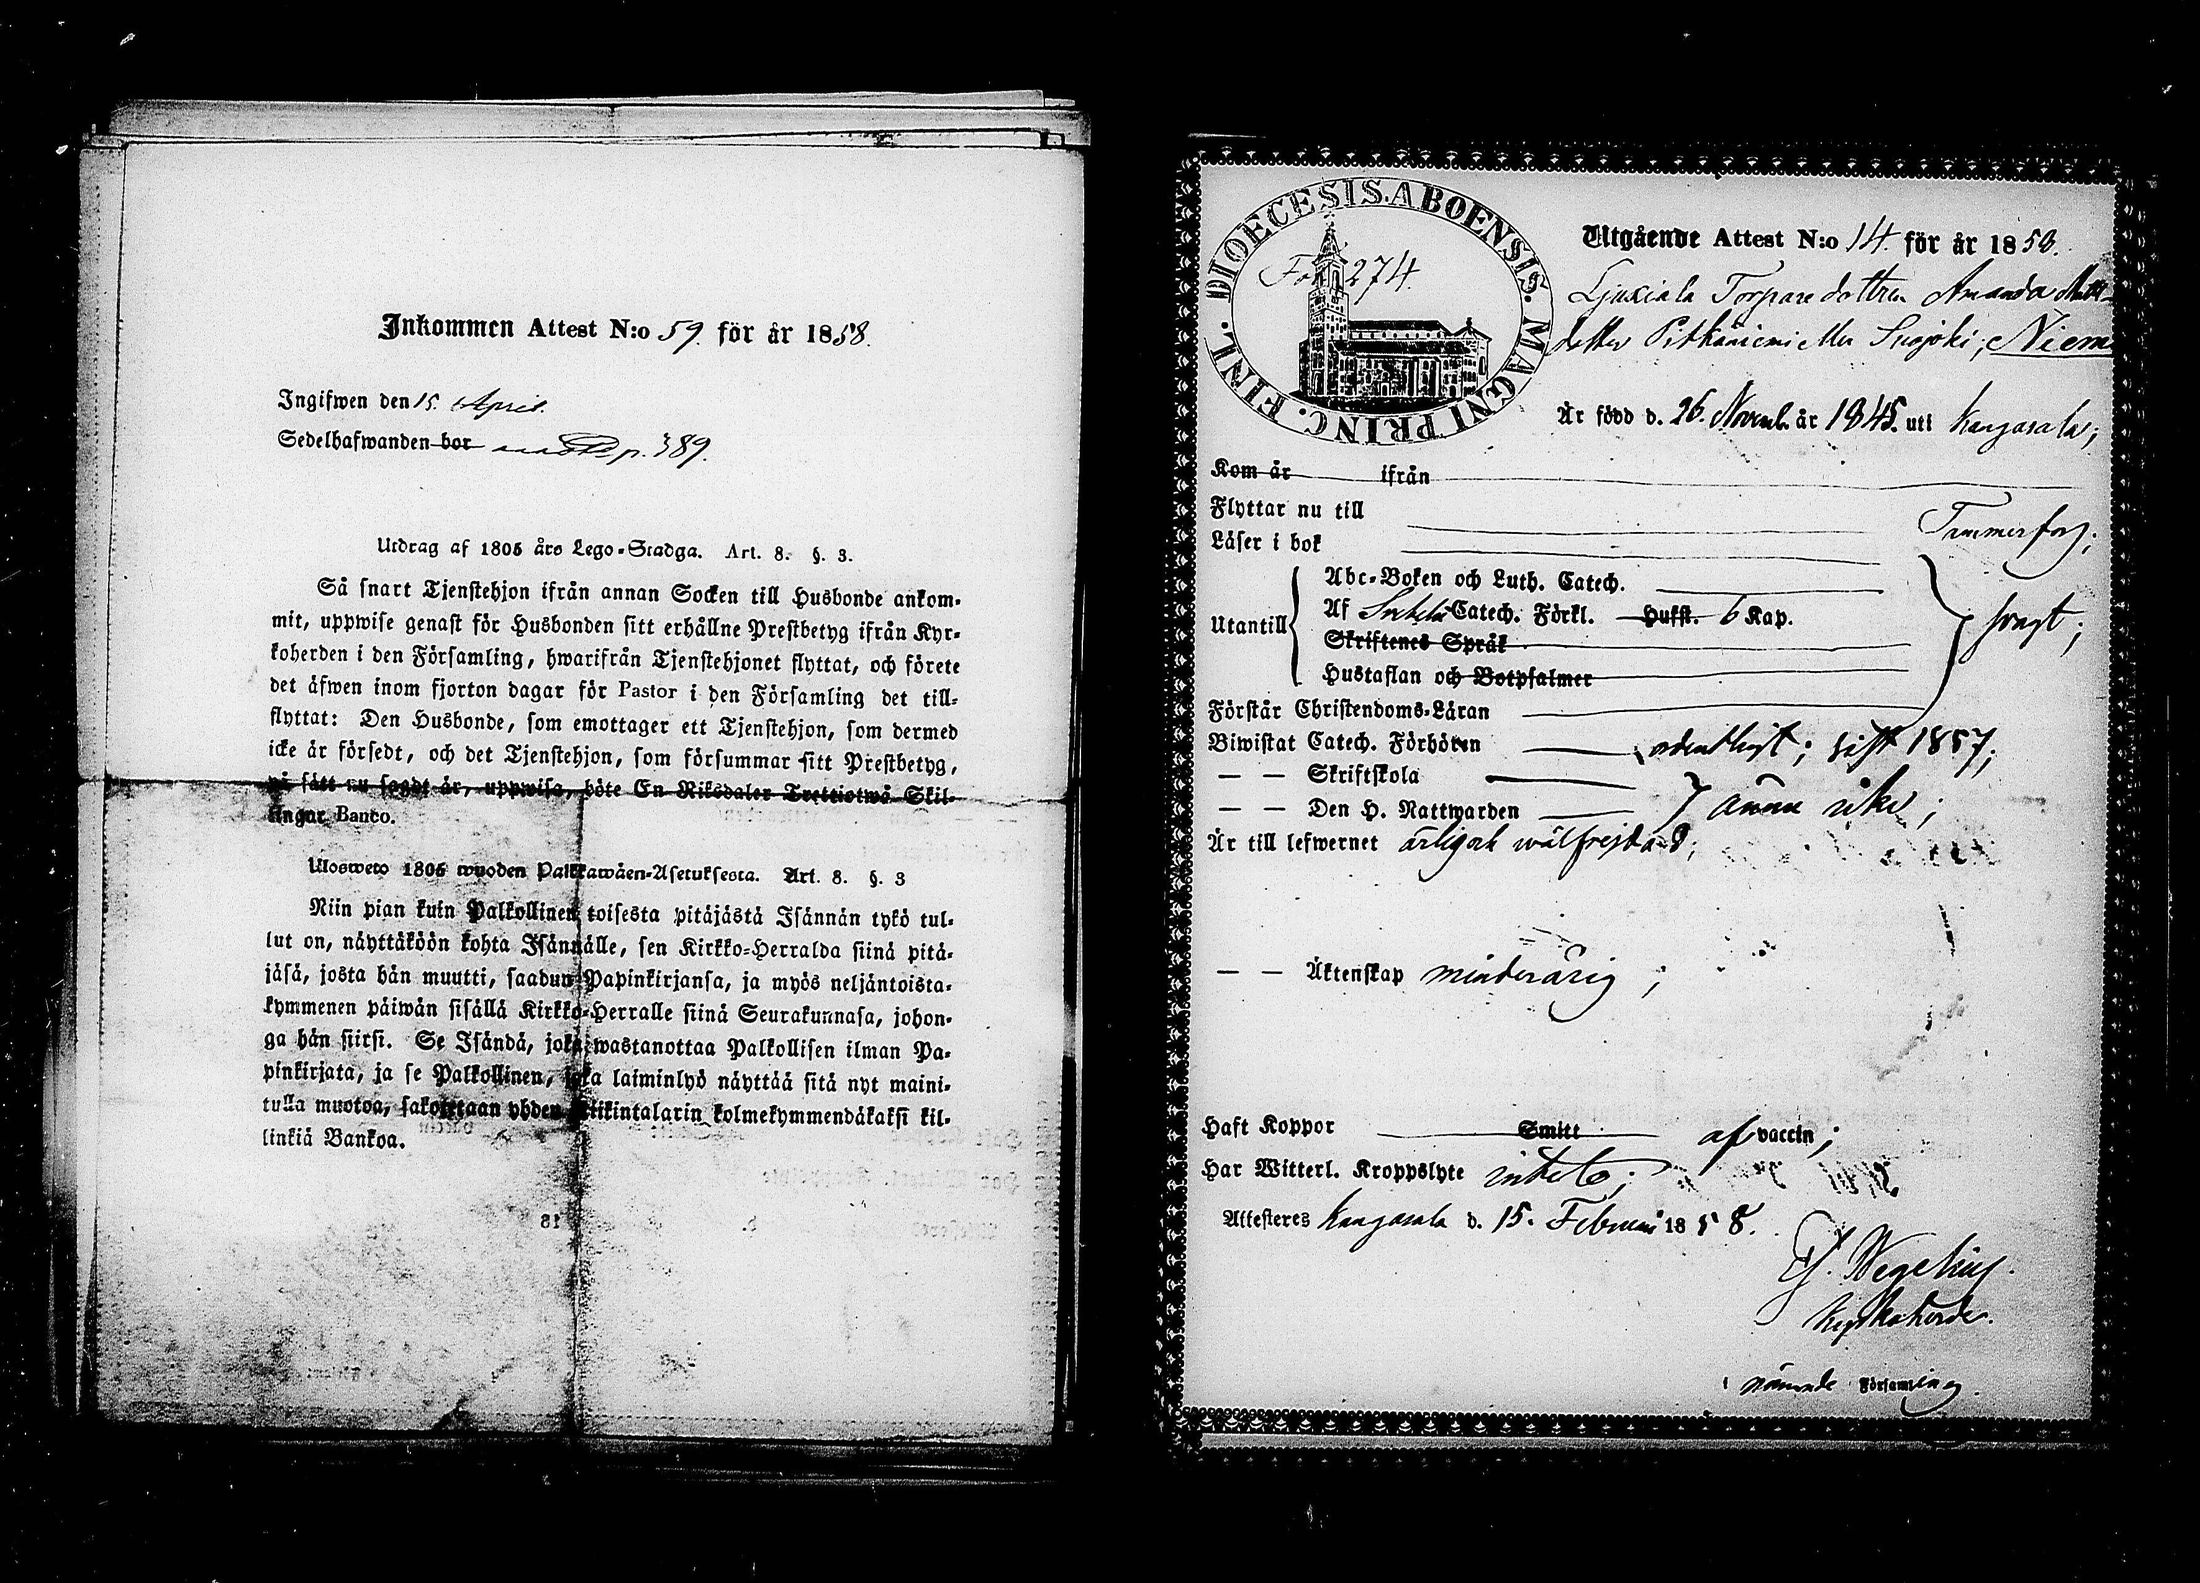 Inkommen Attest N:o 59. för år 1858.
Ingifwen den 15. April.
Sedelhafwanden bor p. 389.
Utdrag af 1805 års Lego-Stadga. Art. 8. §. 3.
Så snart Tjenstehjon ifrån annan Socken till Husbonde ankom-
mit, uppwise genast för Husbonden sitt erhållne Prestbetyg ifrån Kyr-
koherden i den Församling, hwarifrån Tjenstehjonet flyttat, och förete
det äfwen inom fjorton dagar för Pastor i den Församling det till-
flyttat: Den Husbonde, som emottager ett Tjenstehjon, som dermed
icke är försedt, och det Tjenstehjon, som försummar sitt Prestbetyg,
på sätt nu sagdt är, uppwisa, böte En Riksdaler Trettiotwå Skil-
lingar Banco.
Ulosweto 1805 wuoden Palkkawäen-Asetuksesta. Art. 8. §. 3
Niin pian kuin Palkollinen toisesta pitäjästä Isännän tykö tul-
lut on, näyttäköön kohta Isännälle, sen Kirkko-Herralda siinä pitä-
jäsä, josta hän muutti, saadun Papinkirjansa, ja myös neljäntoista-
kymmenen päiwän sisällä Kirkko-Herralle siinä Seurakunnasa, johon-
ga hän siirsi. Se Isändä, joka wastanottaa Palkollisen ilman Pa-
pinkirjata, ja se Palkollinen, joka laiminlyö näyttää sitä nyt maini-
tulla muotoa, sakotetaan yhden Riikintalarin kolmekymmendäkaksi kil-
linkiä Bankoa.
DIOECESIS. ABOENSIS. MAGNI PRINC. FINL.
Fol 274.
Utgående Attest N:o 14. för år 1858.
Ljuxiala Torpare dottren Amanda Matts-
dotter Pitkäniemi eller Suojoki, Niem
Är född d. 26. Novemb. år 1845. uti Kangasala;
Kom år ifrån
Flyttar nu till Tammerfors;
Läser i bok
Utantill
Abc-Boken och Luth. Catech.
Af Catech. Förkl. Hufst. 6 Kap.
Skriftenes Språk
Hustaflan och Botpsalmer
svagt;
Förstår Christendoms-Läran
Biwistat Catech. Förhören ordentligt; sist 1857;
— — Skriftskola
— — Den H. Nattwarden ännu icke;
Är till lefwernet ärlig och wälfrejdad;
— — Äktenskap minderårig;
Haft Koppor Smitt af vaccin;
Har Witterl. Kroppslyte intet;
Attesteres Kangasala d. 15. Februari 1858.
Wegelius.
Kyrkoherde.
i nämnde Församling.